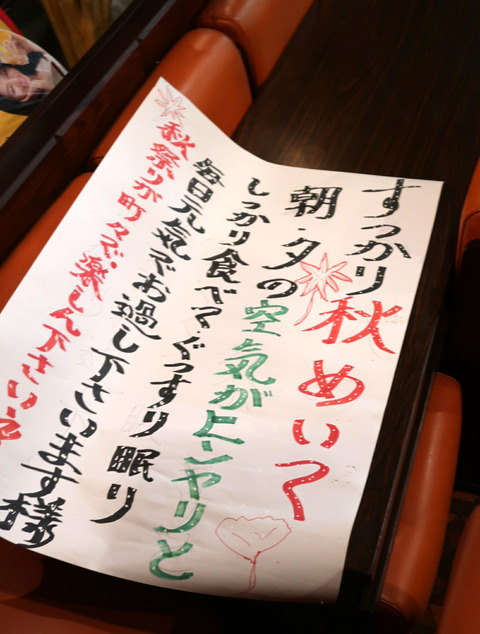 すっかり秋めいて
朝・夕の空気がヒンヤリと
しっかり食べて・ぐっすり眠り
毎日元気でお過し下さいます様
秋祭りが町々で・楽しん下さいネ